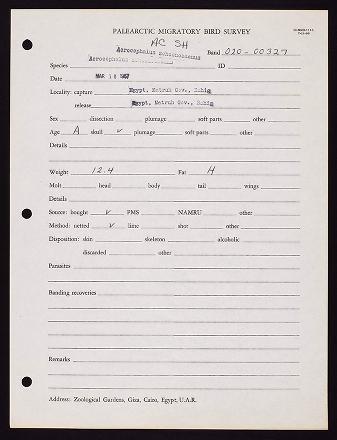 PALEARCTIC MIGRATORY BIRD SURVEY
AC SH
Acrocephalus schoenobaenus Band 020-00327
Acrocephalus
Species ID
Date MAR 18 1967
Locality: capture Egypt, Matruh Gov., Bahig
release Egypt, Matruh Gov., Bahig
Sex dissection plumage soft parts other
Age A skull ✓ plumage soft parts other
Details
Weight 12.4 Fat H
Molt head body tail wings
Details
Source: bought ✓ PMS NAMRU other
Method: netted ✓ lime shot other
Disposition: skin skeleton alcoholic
discarded other
Parasites
Banding recoveries
Remarks
Address: Zoological Gardens, Giza, Cairo, Egypt, U.A.R.